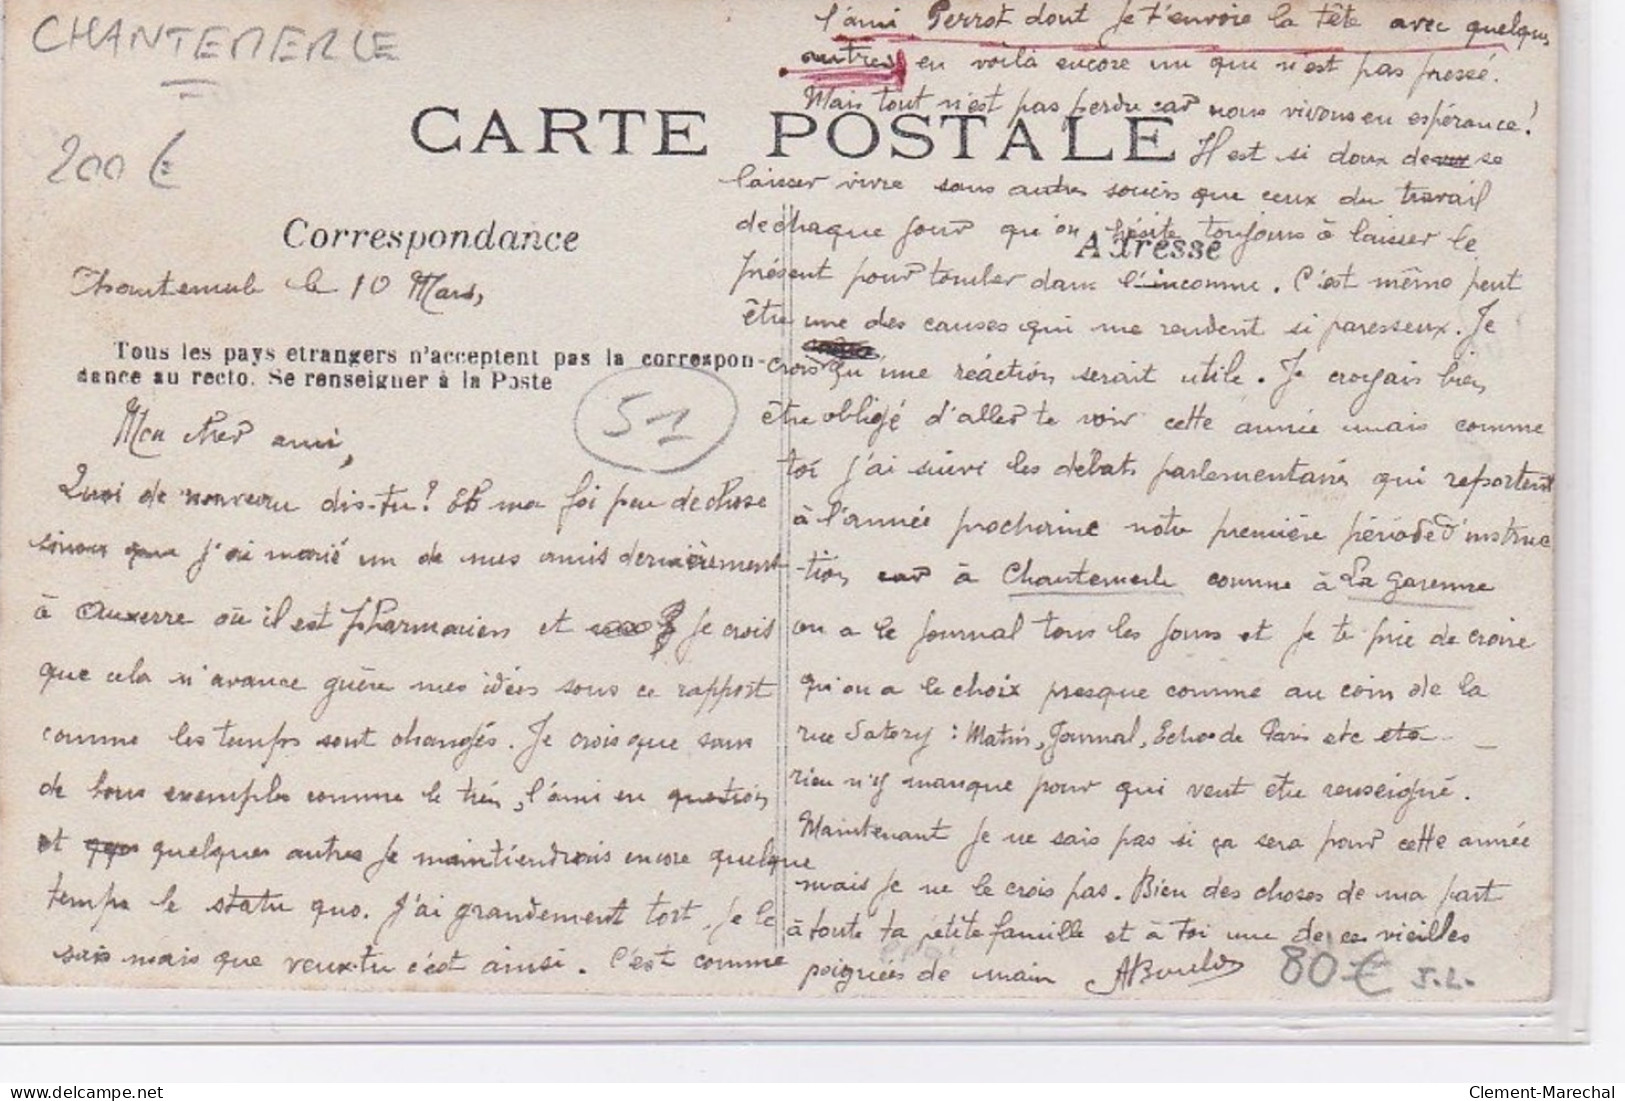 CHANTEMERLE
200 €
CARTE POSTALE
Correspondance
Chantemerle le 10 Mars,
Tous les pays etrangers n'acceptent pas la correspon-
dance au recto. Se renseigner à la Poste
51
Mon cher ami,
Quoi de nouveau dis-tu ? Et ma foi peu de chose
sinon que j'ai marié un de mes amis dernièrement
à Auxerre où il est pharmacien et je crois
que cela n'avance guère mes idées sous ce rapport
comme les temps sont changés. Je crois que sans
de bons exemples comme le tien, l'ami en question
et quelques autres je maintiendrais encore quelque
temps le statu quo. J'ai grandement tort, je le
sais mais que veux-tu c'est ainsi. C'est comme
l'ami Perrot dont je t'envoie la tête avec quelques
autres en voilà encore un qui n'est pas pressé.
Mais tout n'est pas perdu car nous vivons en espérance !
Il est si doux de se
laisser vivre sans autres soucis que ceux du travail
de chaque jour qu'on hésite toujours à laisser le
Adresse
présent pour tomber dans l'inconnu. C'est même peut
être une des causes qui me rendent si paresseux. Je
crois qu'une réaction serait utile. Je croyais bien
être obligé d'aller te voir cette année mais comme
toi j'ai suivi les débats parlementaires qui reportent
à l'année prochaine notre première période d'instruc
-tion, car à Chantemerle comme à La Garenne
on a le journal tous les jours et je te prie de croire
qu'on a le choix presque comme au coin de la
rue Satory : Matin, Journal, Echo de Paris etc etc
rien n'y manque pour qui veut être renseigné.
Maintenant je ne sais pas si ça sera pour cette année
mais je ne le crois pas. Bien des choses de ma part
à toute ta petite famille et à toi une de ces vieilles
poignées de main
80 € J.L.
Clement-Marechal